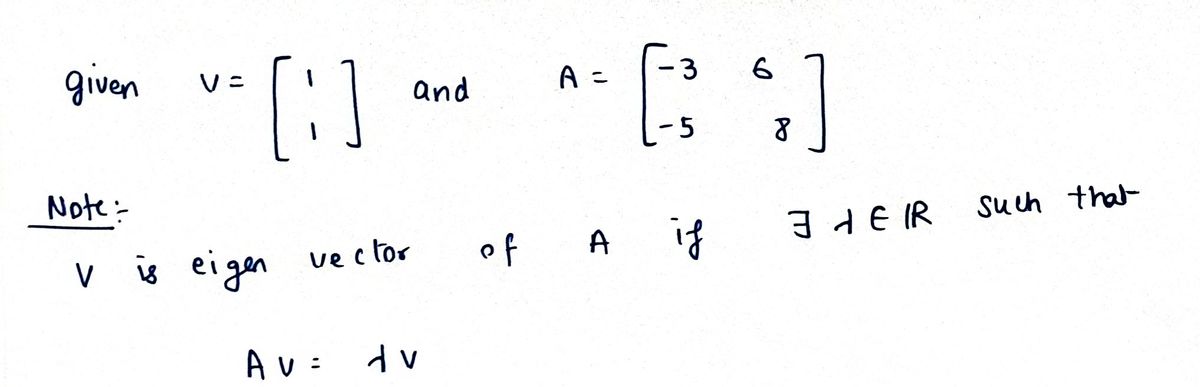 given v = [ 1 1 ] and A = [ -3 6 -5 8 ]
Note :-
v is eigen vector of A if ∃ λ ∈ ℝ such that
A v = λ v